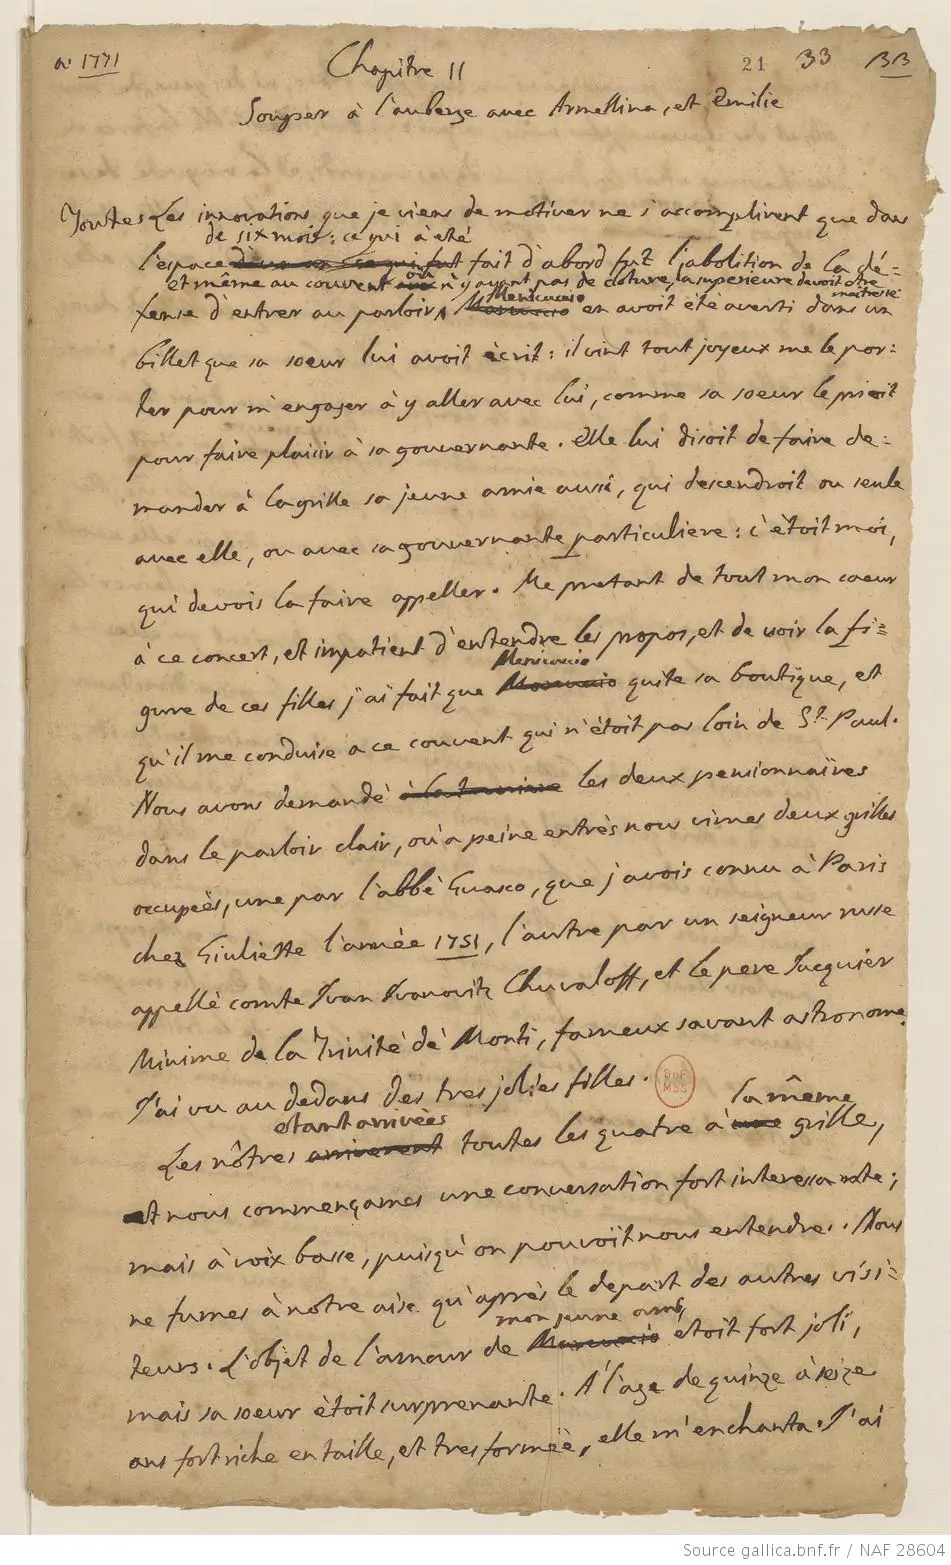 a: 1771
Chapitre II
21 33 BB
Souper à l'auberge avec Armelline, et Emilie
Toutes Les innovations que je viens de motiver ne s'accomplirent que dans
de six mois: ce qui à eté
l'espace fait d'abord fut l'abolition de la dé=
et même au couvent où n'y ayant pas de cloture, la superieure devoit être
maitresse
fense d'entrer au parloir, Menicuccio en avoit été averti dans un
billet que sa soeur lui avoit écrit: il vint tout joyeux me le por=
ter pour m'engager à y aller avec lui, comme sa soeur le prioit
pour faire plaisir à sa gouvernante. Elle lui disoit de faire de=
mander à la grille sa jeune amie aussi, qui descendroit ou seule
avec elle, ou avec sa gouvernante particuliere: c'étoit moi,
qui devois la faire appeller. Me pretant de tout mon coeur
à ce concert, et impatient d'entendre les propos, et de voir la fi=
Menicuccio
gure de ces filles j'ai fait que quite sa boutique, et
qu'il me conduise a ce couvent qui n'étoit pas loin de St. Paul.
Nous avons demandé les deux pensionnaires
dans le parloir clair, où a peine entrès nous vimes deux grilles
occupées, une par l'abbè Guasco, que j'avois connu à Paris
chez Giuliette l'année 1751, l'autre par un seigneur russe
appellè comte Ivan Ivanovitz Chuvaloff, et le pere Jacquier
Minime de la Trinité dè Monti, fameux savant astronome.
J'ai vu au dedans des tres jolies filles.
BnF
MSS
etant arrivèes la même
Les nôtres toutes les quatre à grille,
nous commençames une conversation fort interessante;
mais à voix basse, puisqu'on pouvoit nous entendre. Nous
ne fumes à nôtre aise qu'après le depart des autres visi=
mon jeune ami
teurs. L'objet de l'amour de etoit fort joli,
mais sa soeur ètoit surprenante. A l'age de quinze à seize
ans fort riche en taille, et tres formèe, elle m'enchanta. J'ai
Source gallica.bnf.fr / NAF 28604